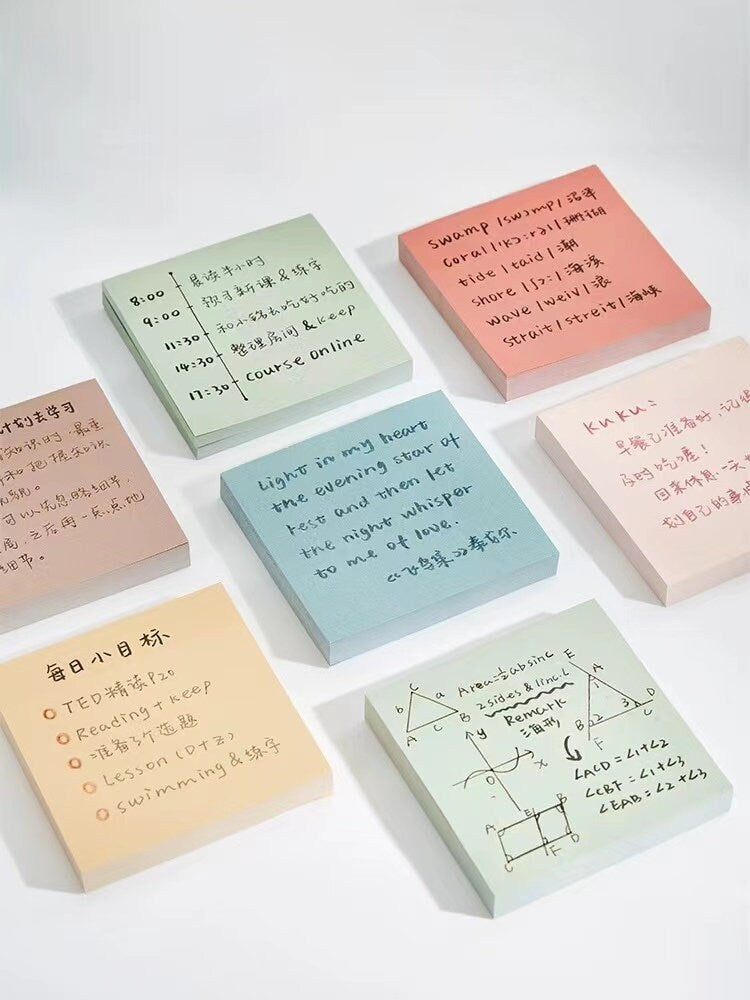 8:00 晨读半小时
9:00 预习新课&练字
11:30 和小锅去吃好吃的
14:30 整理房间&keep
17:30 course online
swamp /swɔmp/ 沼泽
coral /'kɔ:rəl/ 珊瑚
tide /taid/ 潮
shore /ʃɔ:/ 海滨
wave /weiv/ 浪
strait /streit/ 海峡
计划去学习
知识时,最重
和把握知识
可以先忽略细节,
之后再一点点地
细节。
Light in my heart
the evening star of
rest and then let
the night whisper
to me of love.
《飞鸟集》泰戈尔
KuKu:
早餐已准备好,记得
及时吃喔!
回来休息一天
划自己的事
每日小目标
TED精读P20
Reading + Keep
准备3个选题
Lesson (D+Z)
swimming & 练字
C
b a
A C B
Area=½absinC
2 sides & 1 inc.∠
Remark
三角形
E
A
1
B 2 3 D
C
F
y
O x
∠ACD = ∠1+∠2
∠CBF = ∠1+∠3
∠EAB = ∠2+∠3
A E B
C F D